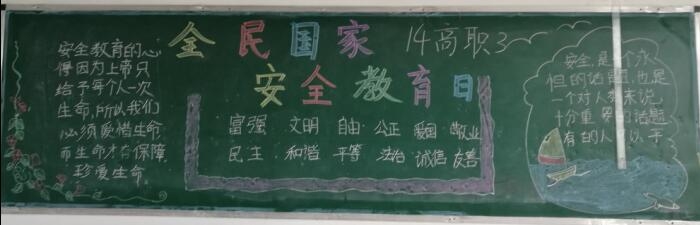 安全教育的心
得因为上帝只
给予每个人一次
生命,所以我们
必须爱惜生命
而生命才有保障
珍爱生命.
全民国家
14高职3
安全教育日
富强 文明 自由 公正 爱国 敬业
民主 和谐 平等 法治 诚信 友善
安全,是一个永
恒的话题,也是
一个对人类来说
十分重要的话题
有的人可以于